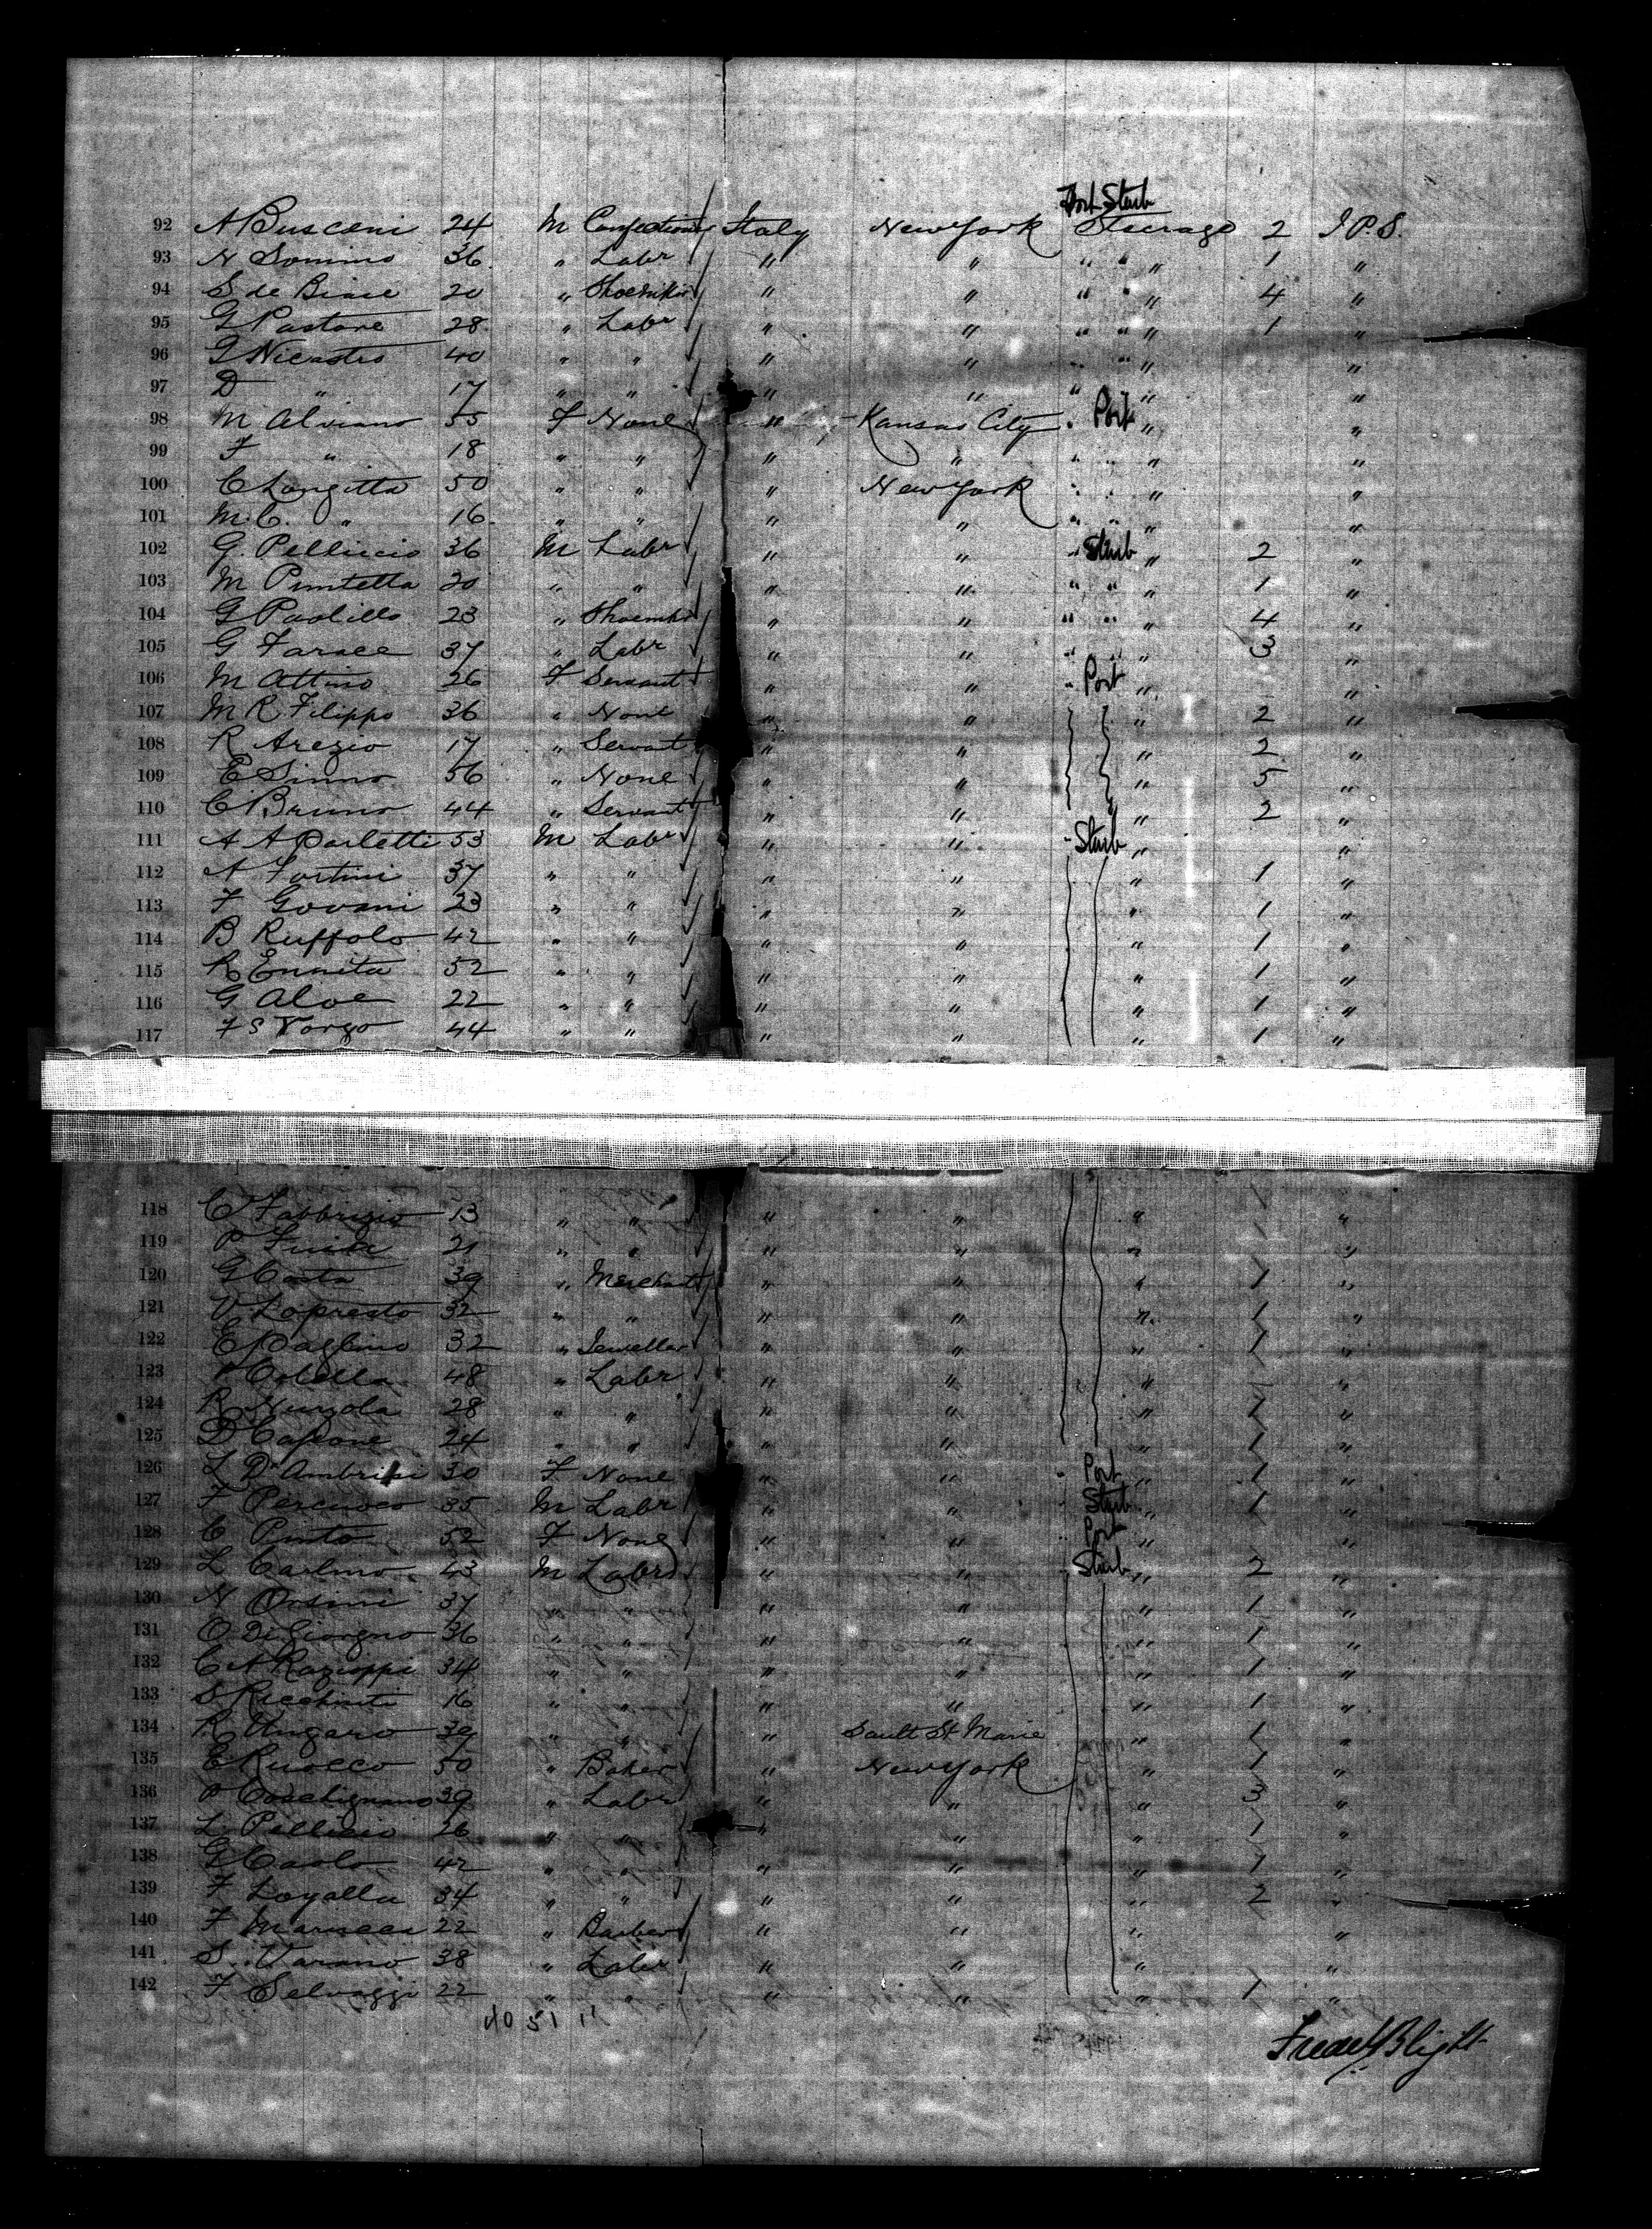 Port Starb
92 A Busceni 24 M Confectionr Italy New York Steerage 2 I.P.S.
93 N Somino 36 " Labr " " " " " 1 "
94 S de Biase 20 " Shoemkr " " " " " 4 "
95 G Pastore 28 " Labr " " " " " 1 "
96 G Nicastro 40 " " " " " " " "
97 D " 17 " " " " " " " "
98 M Alviano 55 F None " Kansas City " Port " "
99 F " 18 " " " " " " " "
100 C Longitta 50 " " " New York " " " "
101 M.C. " 16 " " " " " " " "
102 G. Pelliccio 36 M Labr " " " Starb " 2 "
103 M Puntetta 20 " " " " " " " 1 "
104 G Paolillo 23 " Shoemkr " " " " " 4 "
105 G Farace 37 " Labr " " " " " 3 "
106 M Attino 26 F Servant " " " Port " "
107 M R Filippo 36 " None " " " 2 "
108 R Arezio 17 " Servant " " " 2 "
109 E Sinno 56 " None " " " 5 "
110 C Bruno 44 " Servant " " " 2 "
111 A A Parletti 53 M Labr " " " Starb " "
112 A Fortini 37 " " " " " 1 "
113 F Govani 23 " " " " " 1 "
114 B Ruffolo 42 " " " " " 1 "
115 R Ennita 52 " " " " " 1 "
116 G Aloe 22 " " " " " 1 "
117 F S Vorgo 44 " " " " " 1 "
118 C Fabbrizio 13 " " " " " 1 "
119 P 21 " " " " " "
120 G Costa 39 " Merchant " " " 1 "
121 V Lopresto 32 " " " " " 1 "
122 E Paglino 32 " Jeweller " " " 1 "
123 Colella 48 " Labr " " " "
124 R Nurzola 28 " " " " " 1 "
125 D Capone 24 " " " " " 1 "
126 L D'Ambrisi 30 F None " " " Port " 1 "
127 F Percuoco 35 M Labr " " Starb " 1 "
128 C Pinto 52 F None " " Port " "
129 L Carlino 43 M Labr " " Starb " 2 "
130 N Orsini 37 " " " " " 1 "
131 O Di Giorgno 36 " " " " " 1 "
132 C A Razioppi 34 " " " " " 1 "
133 S Ricchiuti 16 " " " " " 1 "
134 R Ungaro 39 " " " Sault St Marie " 1 "
135 E Ruocco 50 " Baker " New York " 1 "
136 P 39 " Labr " " " 3 "
137 L Pellicio 26 " " " " " 1 "
138 G Caolo 42 " " " " " 1 "
139 F Loyalla 34 " " " " " 2 "
140 F Marueca 22 " Barber " " " "
141 S. Varano 38 " Labr " " " "
142 F Selvaggi 22 " " " " " 1 "
40 51 11
Fredk Blight